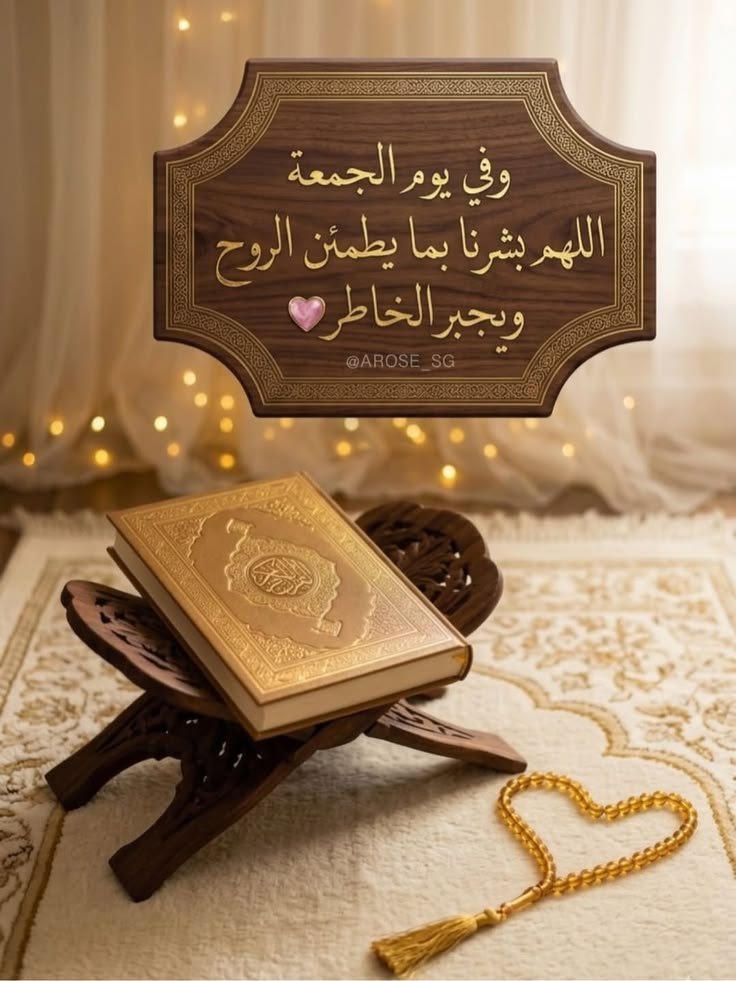 وفي يوم الجمعة
اللهم بشرنا بما يطمئن الروح
ويجبر الخاطر🩷
@AROSE_SG